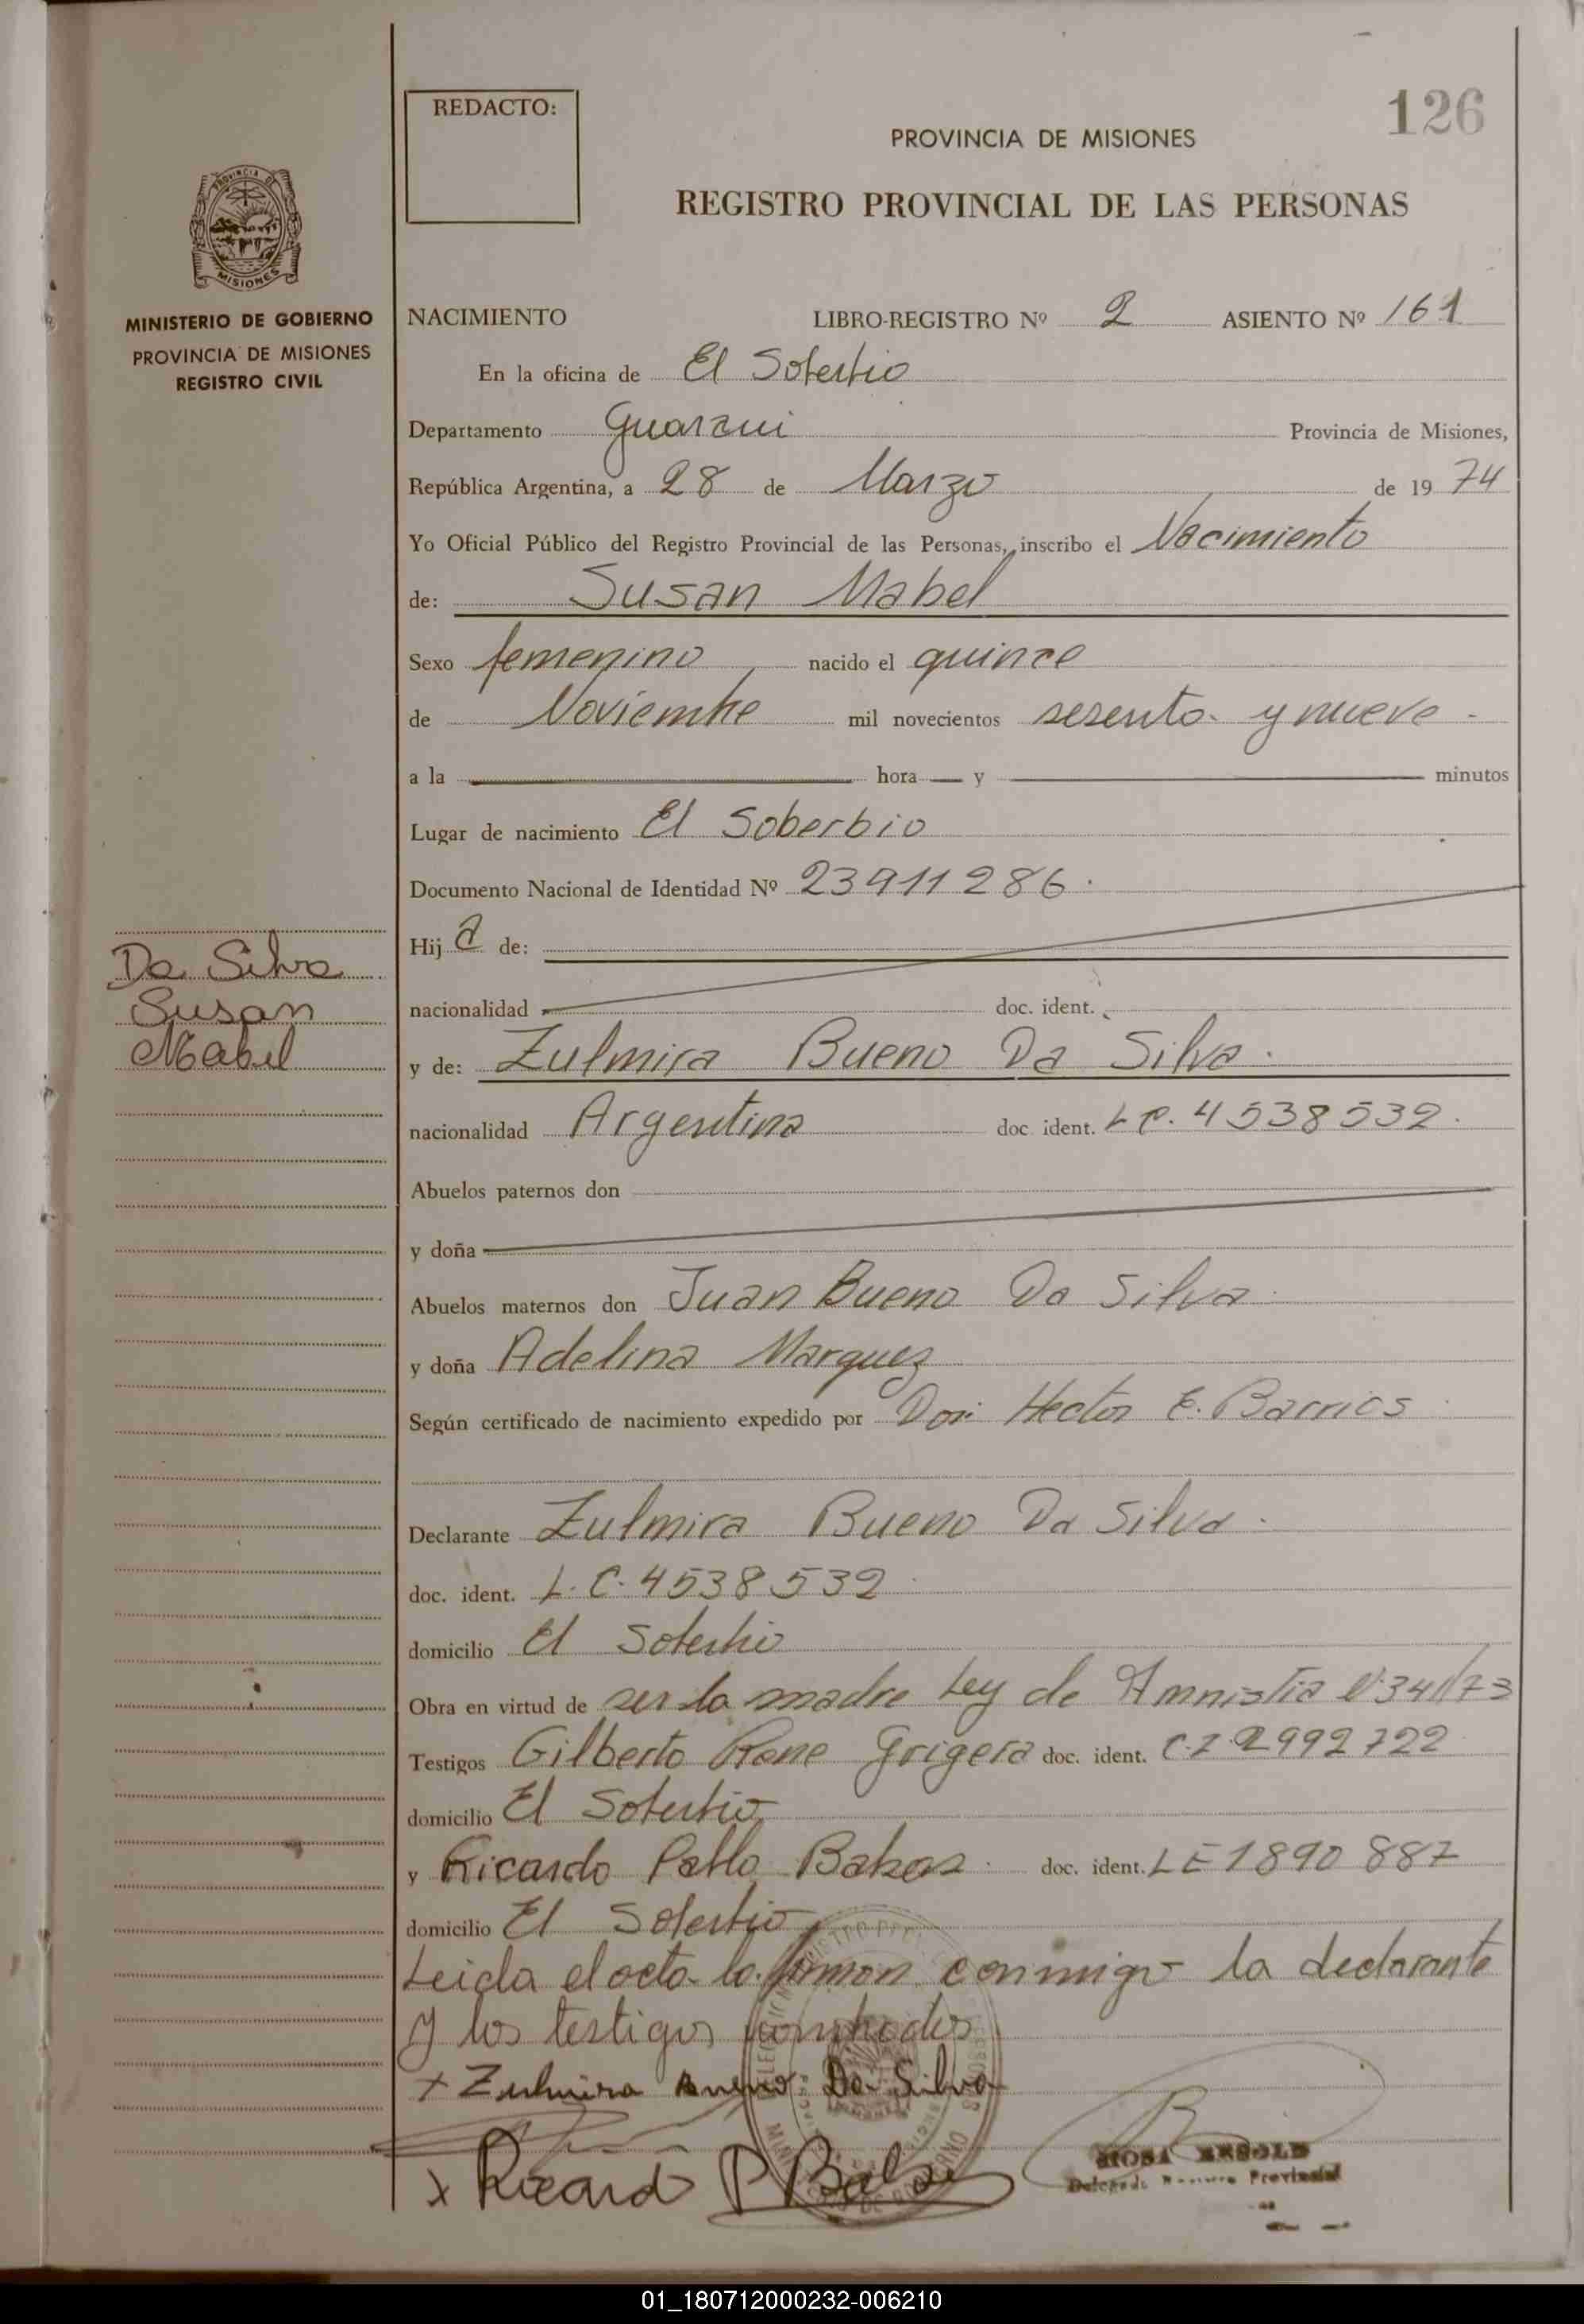 126
REDACTO:
PROVINCIA DE MISIONES
REGISTRO PROVINCIAL DE LAS PERSONAS
PROVINCIA DE
MISIONES
MINISTERIO DE GOBIERNO
PROVINCIA DE MISIONES
REGISTRO CIVIL
NACIMIENTO LIBRO-REGISTRO Nº 2 ASIENTO Nº 161
En la oficina de El Soberbio
Departamento Guarani Provincia de Misiones,
República Argentina, a 28 de Marzo de 19 74
Yo Oficial Público del Registro Provincial de las Personas, inscribo el Nacimiento
de: Susan Mabel
Sexo femenino nacido el quince
de Noviembre mil novecientos sesenta y nueve -
a la hora y minutos
Lugar de nacimiento El Soberbio
Documento Nacional de Identidad Nº 23911286.
Hij a de:
nacionalidad doc. ident.
Da Silva
Susan
Mabel
y de: Zulmira Bueno Da Silva.
nacionalidad Argentina doc. ident. L C. 4538532.
Abuelos paternos don
y doña
Abuelos maternos don Juan Bueno Da Silva
y doña Adelina Marquez
Según certificado de nacimiento expedido por Hector E. Barrios
Declarante Zulmira Bueno Da Silva.
doc. ident. L. C. 4538532
domicilio El Soberbio
Obra en virtud de ser la madre Ley de Amnistia Nº 341/73
Testigos Gilberto Rene Grigera doc. ident. C.I. 2992722
domicilio El Soberbio
y Ricardo Pablo doc. ident. LE 1890887
domicilio El Soberbio
Leida el acta la firman conmigo la declarante
y los testigos nombrados
+ Zulmira Bueno Da Silva
x Ricardo P
ROSA
Provincial
01_180712000232-006210